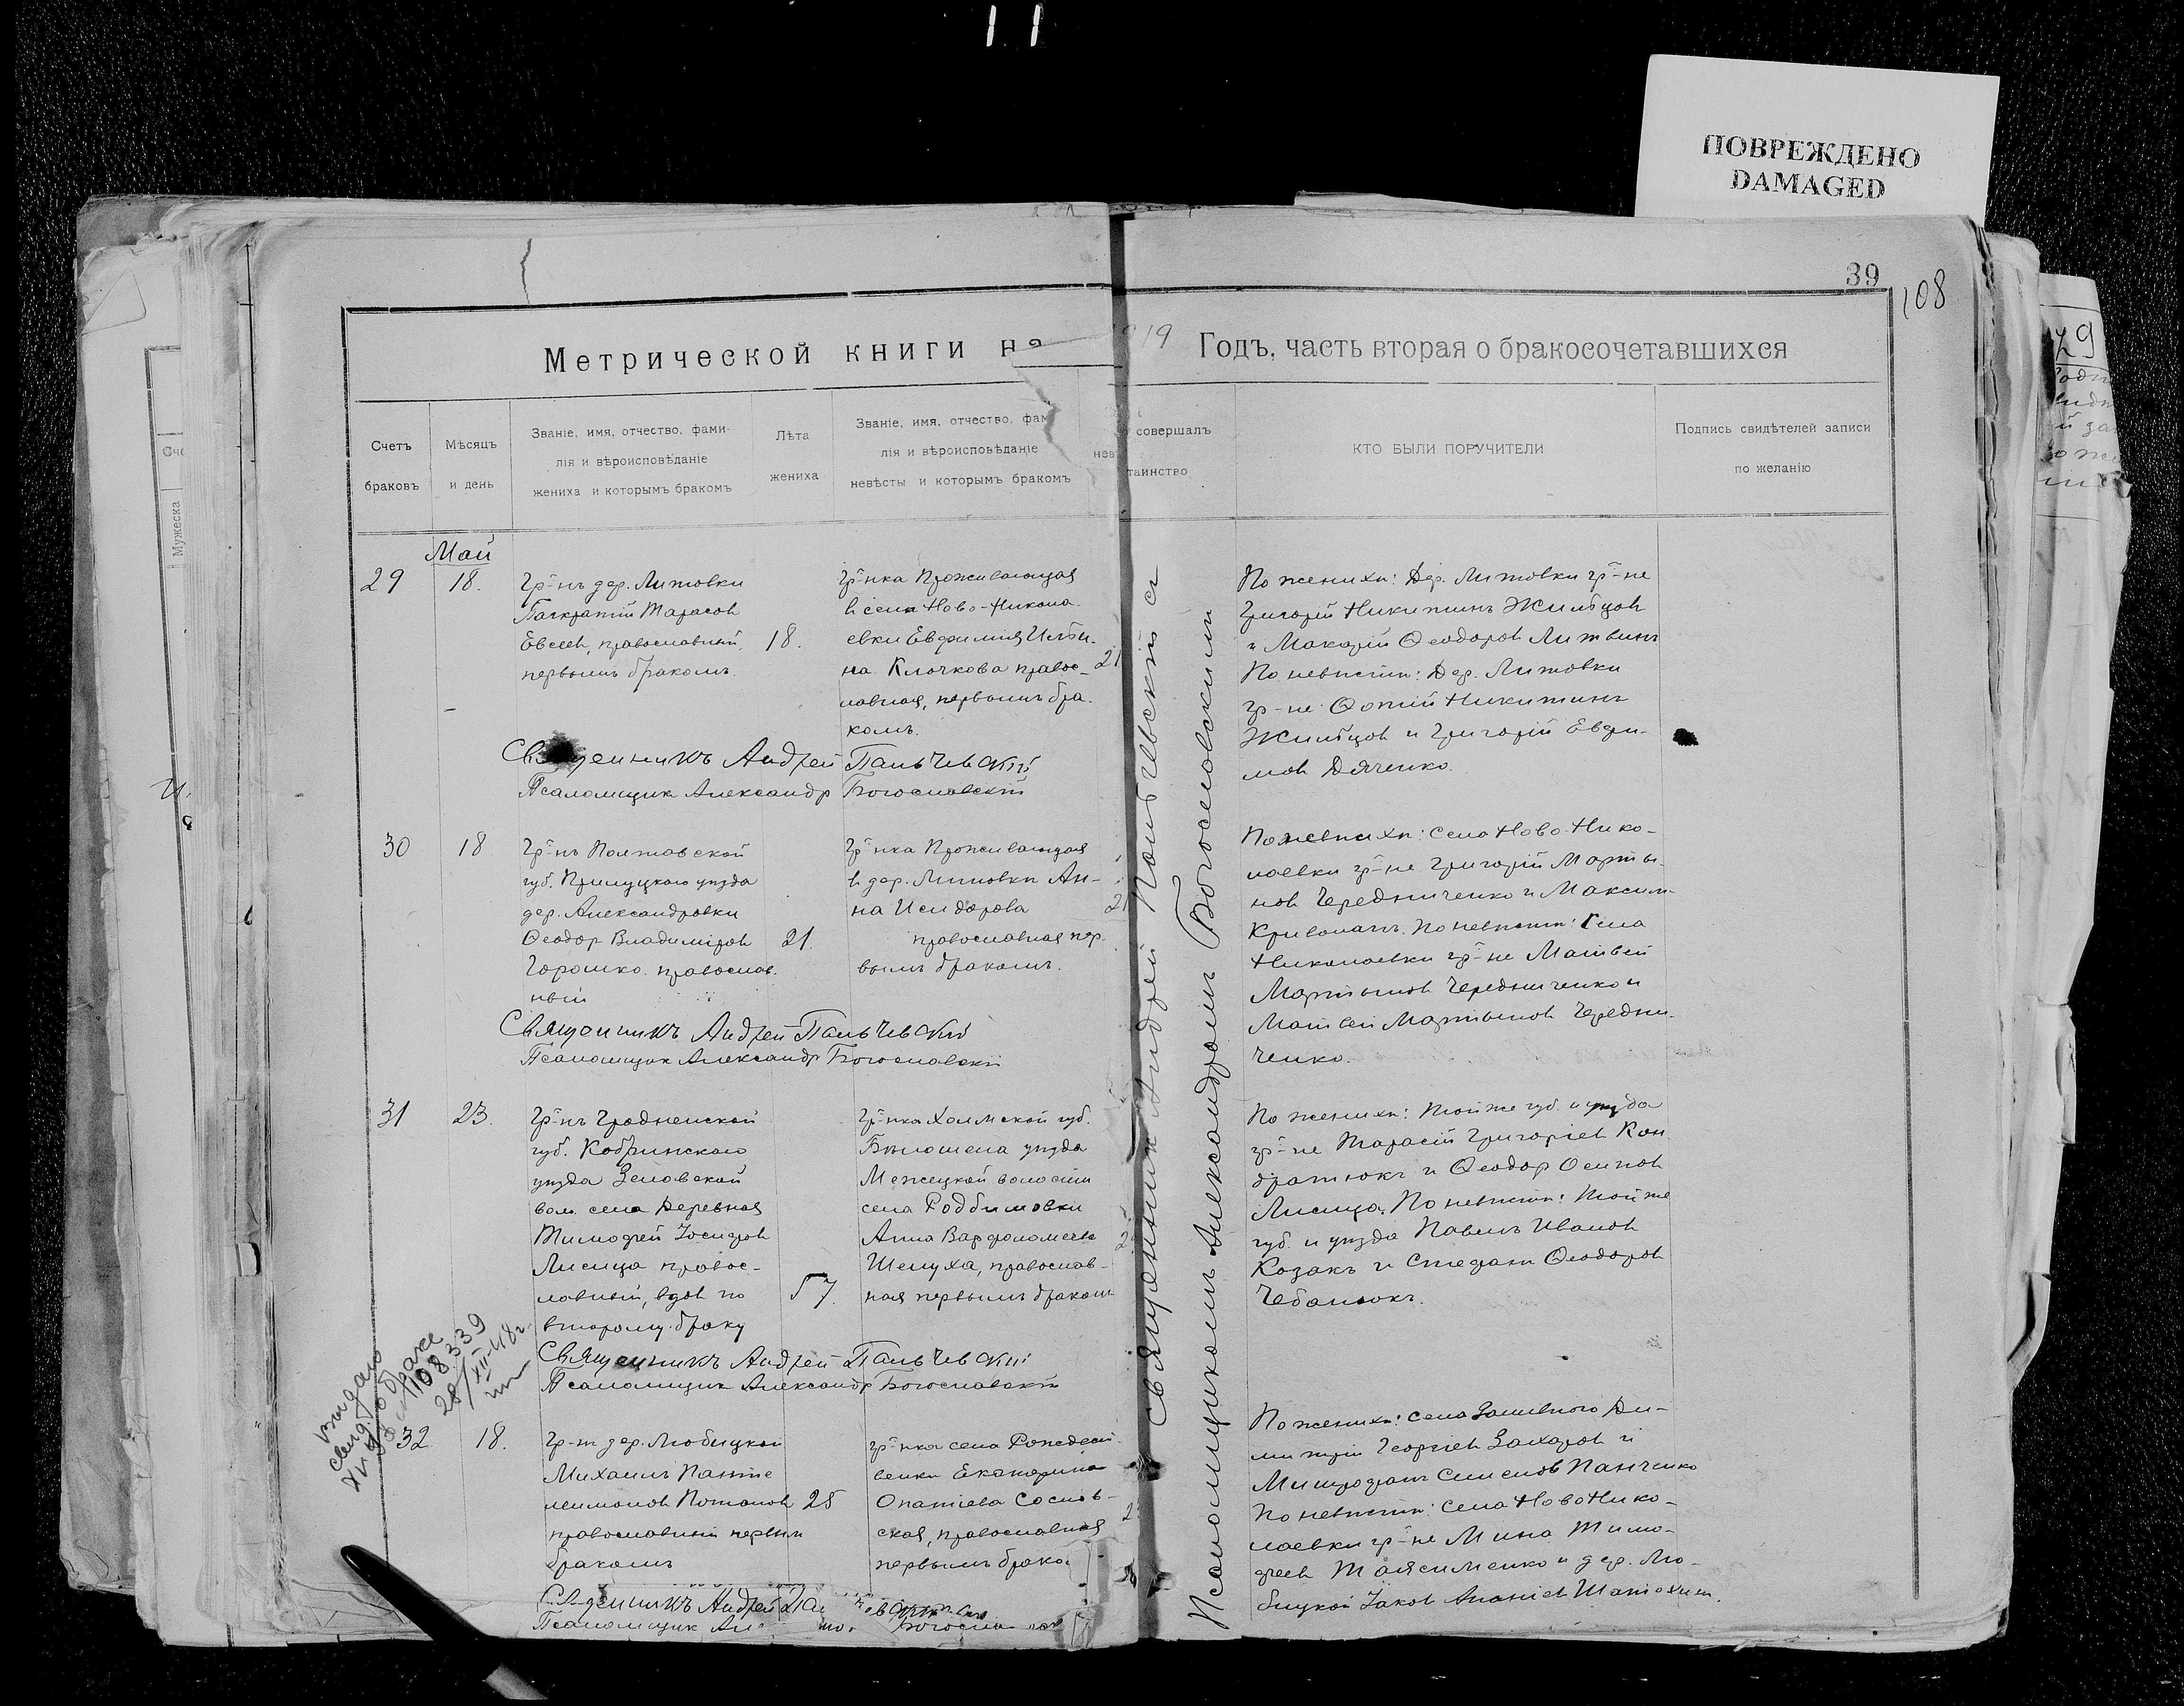 ПОВРЕЖДЕНО
DAMAGED
39
108
Метрической книги на
1919 Годъ, часть вторая о бракосочетавшихся
Счетъ браковъ
Мѣсяцъ и день
Званіе, имя, отчество, фами-
лія и вѣроисповѣданіе
жениха и которымъ бракомъ
Лѣта жениха
Званіе, имя, отчество, фам
лія и вѣроисповѣданіе
невѣсты и которымъ бракомъ
нев
совершалъ
таинство
КТО БЫЛИ ПОРУЧИТЕЛИ
Подпись свидѣтелей записи
по желанію
Май
29
18.
Гр-нъ дер. Литовки
Панкратій Тарасов
Евсеев, православный,
первымъ бракомъ.
18.
Гр-нка Проживающая
в селѣ Ново-Никола-
евки Евфимія Ильи-
на Клочкова правос-
лавная, первымъ бра-
комъ.
21
По женихѣ: Дер. Литовки гр-не
Григорій Никитинъ Жильцов
и Макарій Ѳеодоров Литвинъ
По невѣстѣ: Дер. Литовки
гр-не Ѳотій Никитинъ
Жильцов и Григорій Евфи-
мов Дяченко.
Священникъ Андрей Пальчевскій
Псаломщик Александр Богословскій
30
18
Гр-нъ Полтавской
губ. Прилуцкаго уѣзда
дер. Александровки
Ѳеодор Владиміров
Горошко. православ-
ный
21.
Гр-нка Проживающая
в дер. Литовки Ан-
на Исидорова
православная пер-
вымъ бракомъ.
21
По женихѣ: Села Ново-Нико-
лаевки гр-не Григорій Марты-
нов Чередниченко и Максим
По невѣстѣ: Села
Николаевки гр-не Матвей
Мартынов Чередниченко и
Матвей Мартынов Чередни-
ченко.
Священникъ Андрей Пальчевскій
Псаломщик Александр Богословскій
31
23.
Гр-нъ Гродненской
губ. Кобринскаго
уѣзда Зеловской
вол. села Деревная
Тимофей Іосифов
Лисица правос-
лавный, вдов по
второму браку
57.
Гр-нка Холмской губ.
уѣзда
волости
села
Анна Варфоломеева
Шелуха, православ-
ная первымъ браком
По женихѣ: Той же губ. и уѣзда
гр-не Тарасій Григоріев Кон-
дратюкъ и Ѳеодор Осипов
Лисица. По невѣстѣ: Той же
губ. и уѣзда Павелъ Иванов
Козакъ и Стефан Ѳеодоров
Чебанюкъ.
Священникъ Андрей Пальчевскій
Псаломщик Александр Богословскій
Выдано
свид. о браке
108339
28/XII-48г.
32
18.
Гр-нъ дер. Любицкой
Михаилъ Панте-
леимонов Потапов
православный первым
бракомъ
25
Гр-нка села Рождест-
венки Екатерина
Опатіева Соснов-
ская, православная
первымъ брако
По женихѣ: Села Ди-
митрій Георгіев Захаров и
Митрофан Семенов Панченко
По невѣстѣ: Села Ново Нико-
лаевки гр-не Мина Тимо-
феев и дер. Лю-
бицкой Іаков Ананіев
Священникъ Андрей
Псаломщик
Священник Андрей Пальчевскій съ
Псаломщикомъ Александромъ Богословскимъ